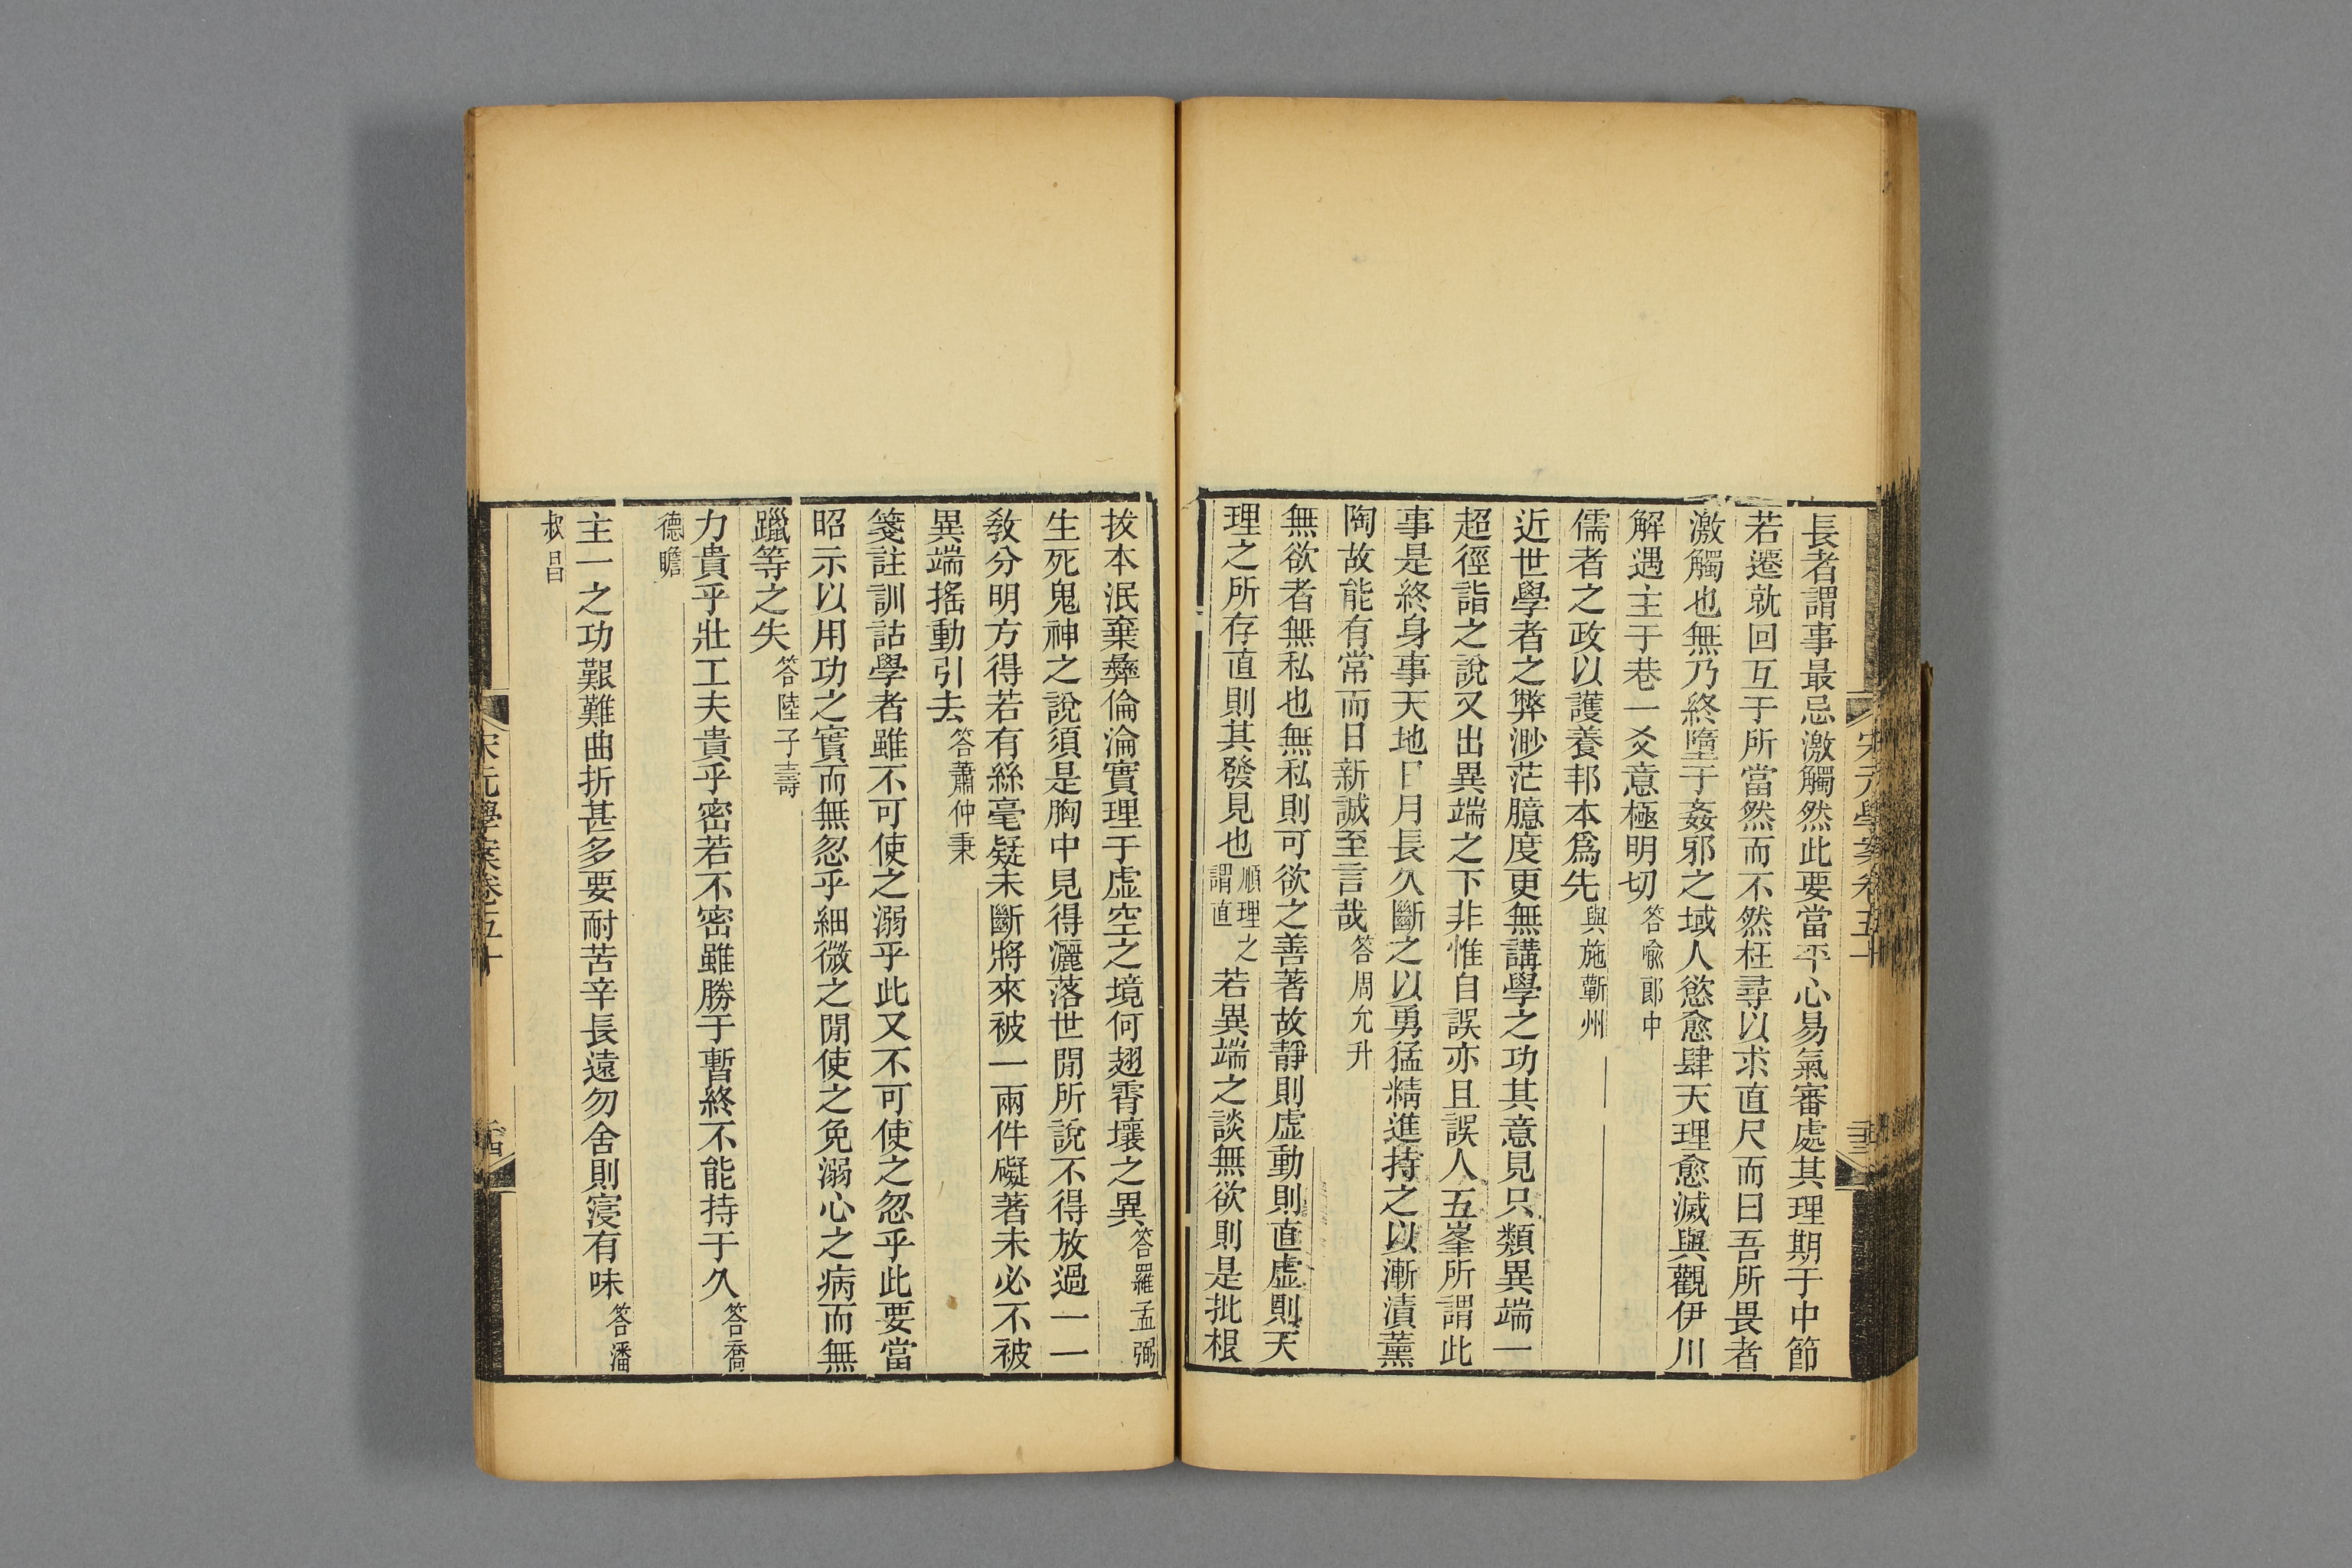 宋元學案卷五十
長者謂事最忌激觸然此要當平心易氣審處其理期于中節
若遷就回互于所當然而不然枉尋以求直尺而曰吾所畏者
激觸也無乃終墮于姦邪之域人慾愈肆天理愈滅與觀伊川
解遇主于巷一爻意極明切答喩郎中
儒者之政以護養邦本爲先與施蘄州
近世學者之弊渺茫臆度更無講學之功其意見只類異端一
超徑詣之說又出異端之下非惟自誤亦且誤人五峯所謂此
事是終身事天地日月長久斷之以勇猛精進持之以漸漬薰
陶故能有常而日新誠至言哉答周允升
無欲者無私也無私則可欲之善著故靜則虛動則直虛則天
理之所存直則其發見也順理之謂直若異端之談無欲則是批根
拔本泯棄彝倫淪實理于虛空之境何翅霄壤之異答羅孟弼
生死鬼神之說須是胸中見得灑落世閒所說不得放過一一
敎分明方得若有絲毫疑未斷將來被一兩件礙著未必不被
異端搖動引去答蕭仲秉
箋註訓詁學者雖不可使之溺乎此又不可使之忽乎此要當
昭示以用功之實而無忽乎細微之閒使之免溺心之病而無
躐等之失答陸子壽
力貴乎壯工夫貴乎密若不密雖勝于暫終不能持于久答喬
德瞻
主一之功艱難曲折甚多要耐苦辛長遠勿舍則寖有味答潘
叔昌
宋元學案卷五十